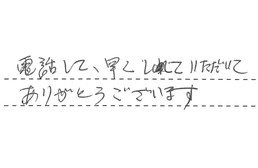 電話して、早くしれていただいて
ありがとうございます